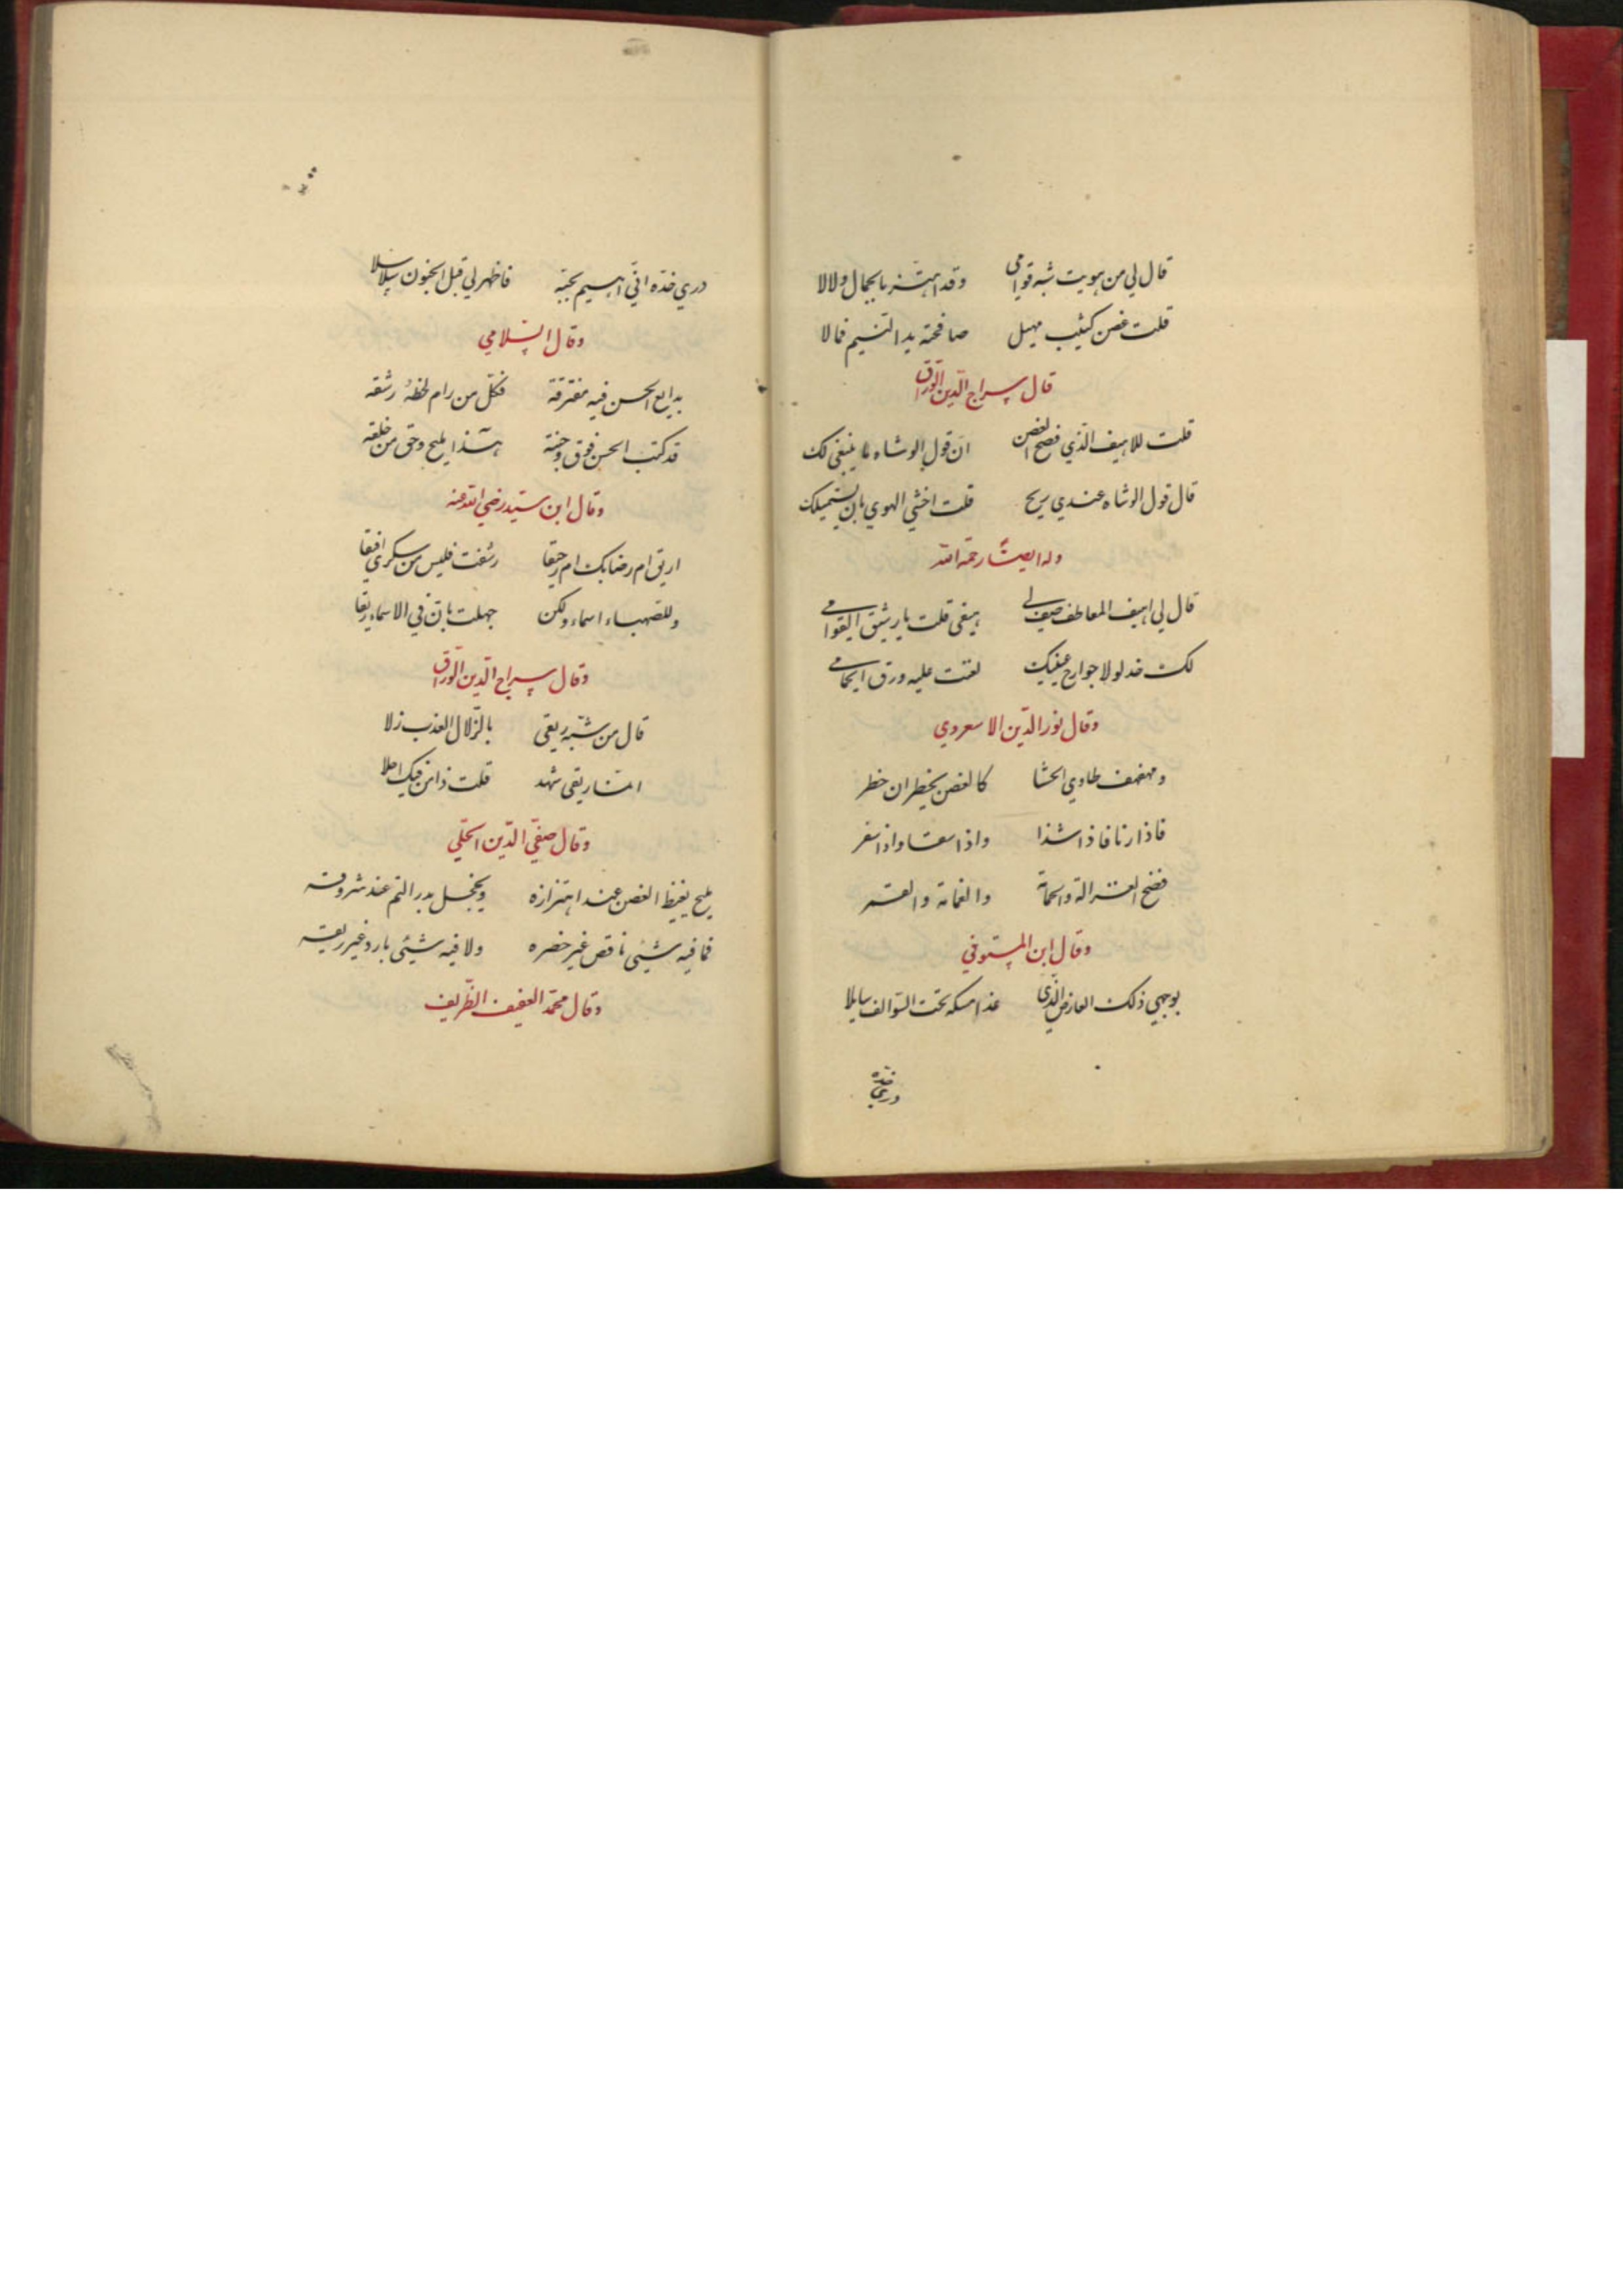 قال لي من هويت شبه قوامي وقد اهتز بالجمال ولالا
قلت غصن كثيب مهيل صافحته يد النسيم فمالا
قال سراج الدين الوراق
قلت للاهيف الذي فضح الغصن ان قول الوشاه ما ينبغي لك
قال قول الوشاه عندي ريح قلت اخشي الهوي بان يستميلك
وله ايضا رحمة الله
قال لي اهيف المعاطف صف لي هيفي قلت يا رشيق القوامي
لك خد لولا جوارح عينيك لغنت عليه ورق الحمامي
وقال نور الدين الاسعردي
ومهفهف طاوي الحشا كالغصن يخطر ان خطر
فاذا رنا فاذا شذا واذا سقا واذا سفر
فضح الغزالة والحمامة والغمامة والقمر
وقال ابن المستوفي
بوجهي ذلك العارض الذي غدا مسكه تحت السوالف سايلا
دري خده
دري خده اني اهيم بحبه فاظهر لي قبل الجنون سلاسلا
وقال السلامي
بدايع الحسن فيه مفترقة فكل من رام لحظه رشقه
قد كتب الحسن فوق وجنته هذا مليح وحق من خلقه
وقال ابن سيد رضي الله عنه
اريق ام رضابك ام رحيقا رشفت فليس من سكري افيقا
وللصهباء اسماء ولكن جهلت بان في الاسماء ريقا
وقال سراج الدين الوراق
قال من شبه ريقي بالزلال العذب زلا
انما ريقي شهد قلت ذا من فيك احلا
وقال صفي الدين الحلي
مليح يغيظ الغصن عند اهتزازه ويخجل بدر التم عند شروقه
فما فيه شيئ ناقص غير خصره ولا فيه شيئ بارد غير ريقه
وقال محمد العفيف الظريف